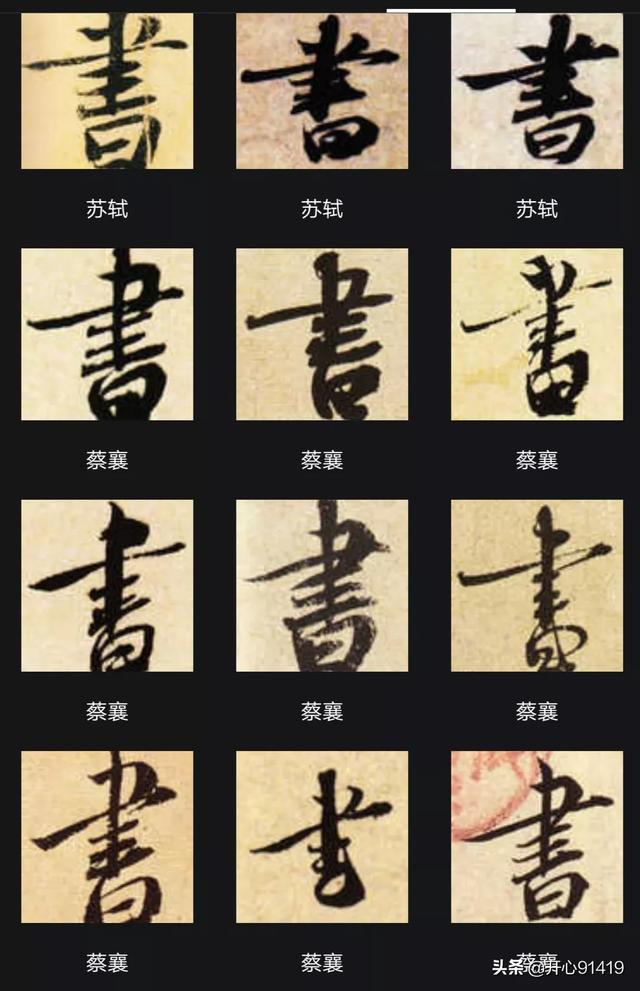 書 書 書
苏轼 苏轼 苏轼
書 書 書
蔡襄 蔡襄 蔡襄
書 書 書
蔡襄 蔡襄 蔡襄
書 書 書
蔡襄 蔡襄 蔡襄
头条@开心91419